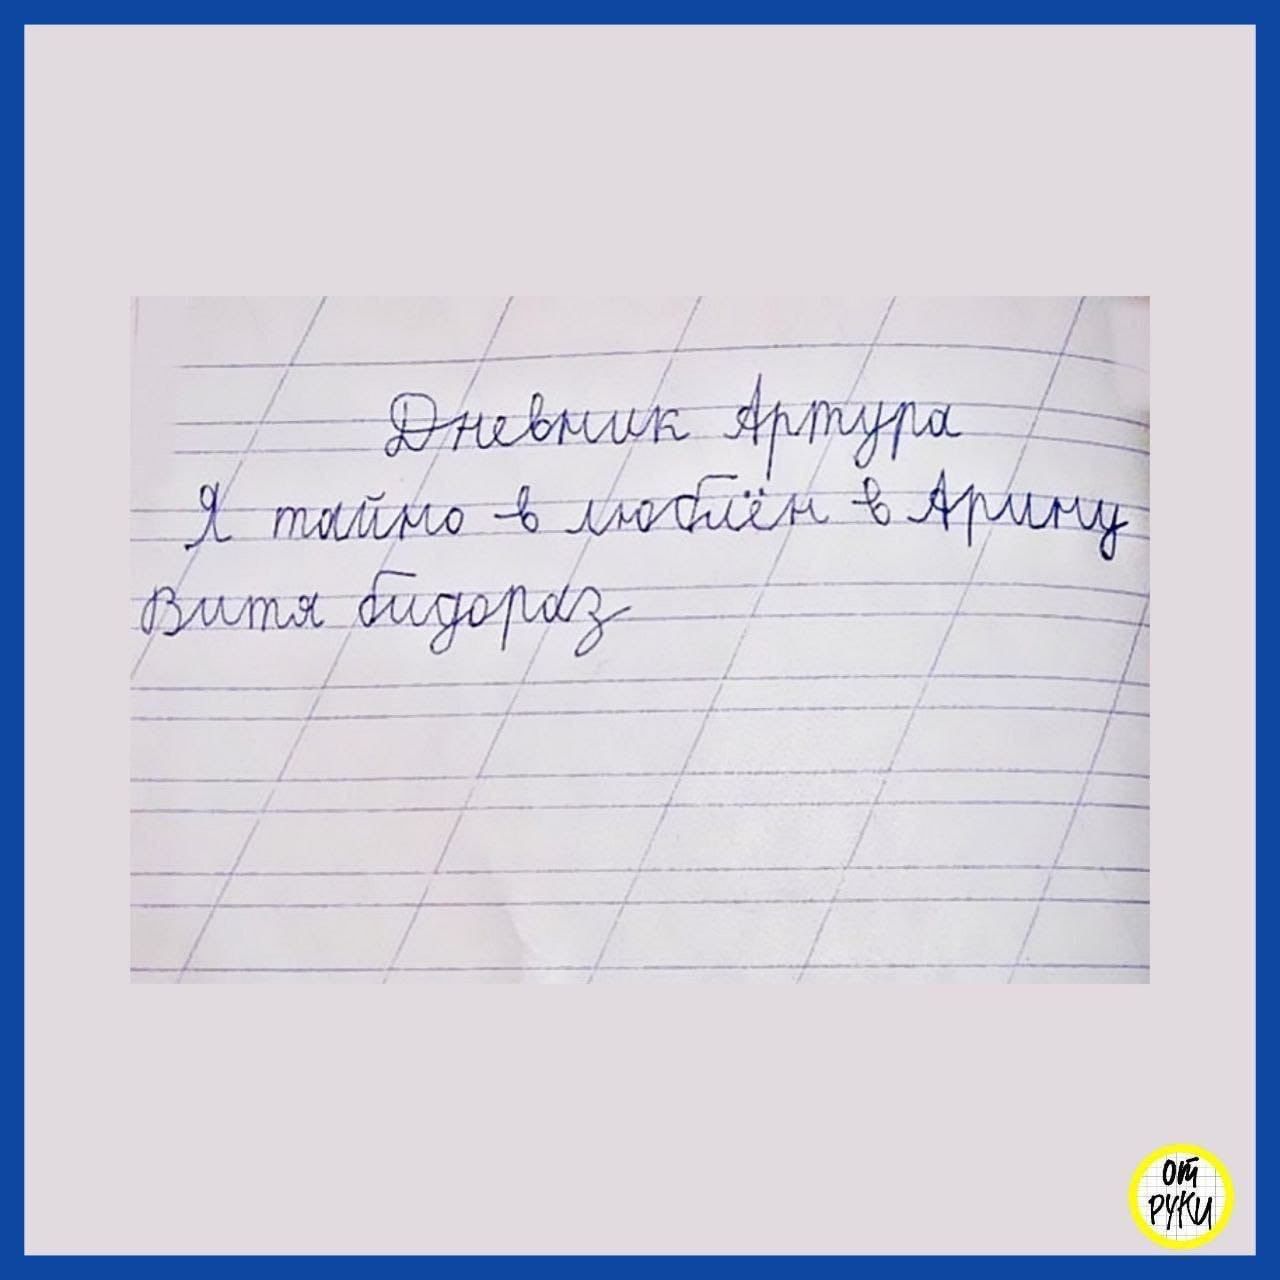 Дневник Артура
Я тайно в люблён в Арину
Витя бидораз
от
руки